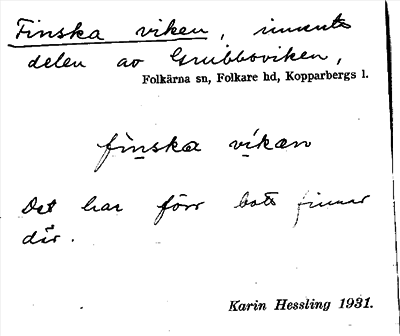 Finska viken, innersta
delen av Grubboviken,
Folkärna sn, Folkare hd, Kopparbergs l.
fìnska víkan
Det har förr bott finnar
där.
Karin Hessling 1931.